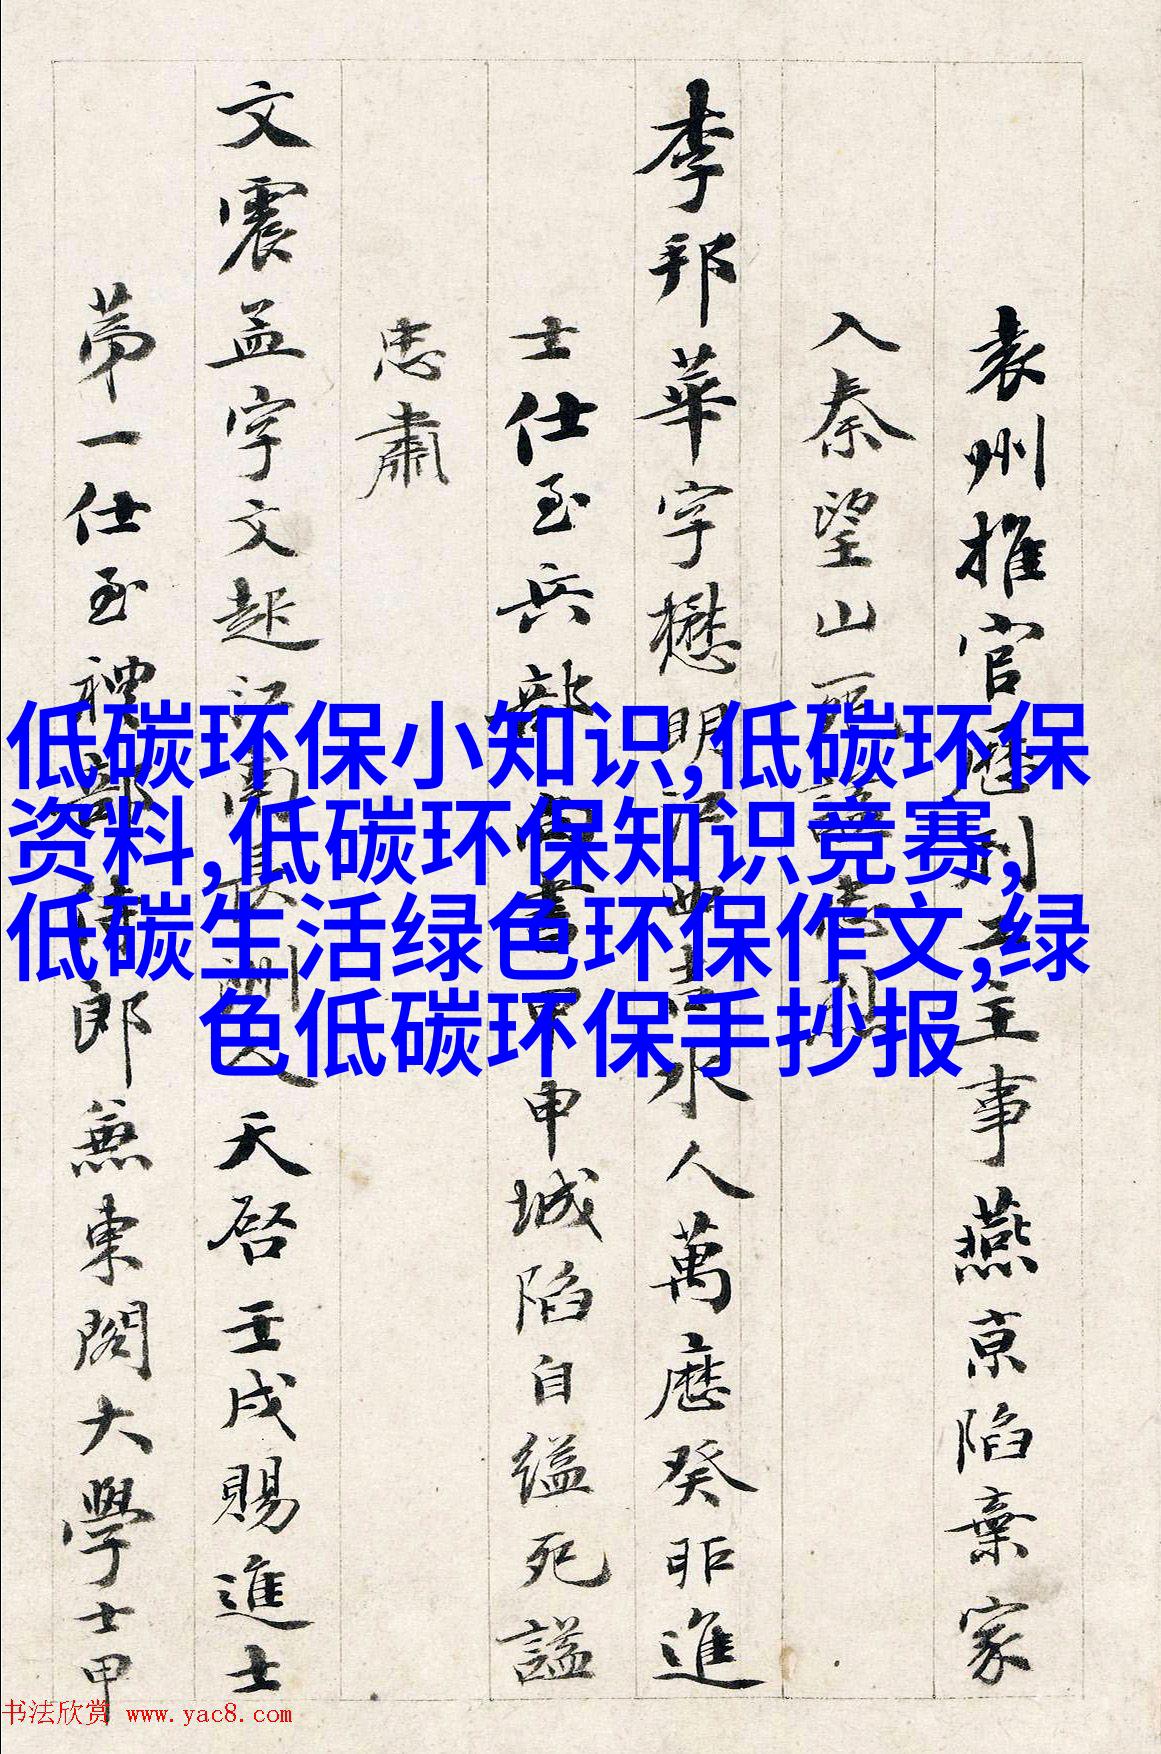 袁州推官歷刑工主事燕京陷棄家
入秦望山
李邦華字懋明江西吉水人萬曆癸卯進
士仕至兵部尚書甲申城陷自縊死謚
忠肅
文震孟字文起江南長洲人天啓壬戌賜進士
第一仕至禮部侍郎兼東閣大學士甲
低碳环保小知识,低碳环保
资料,低碳环保知识竞赛,
低碳生活绿色环保作文,绿
色低碳环保手抄报
书法欣赏 www.yac8.com